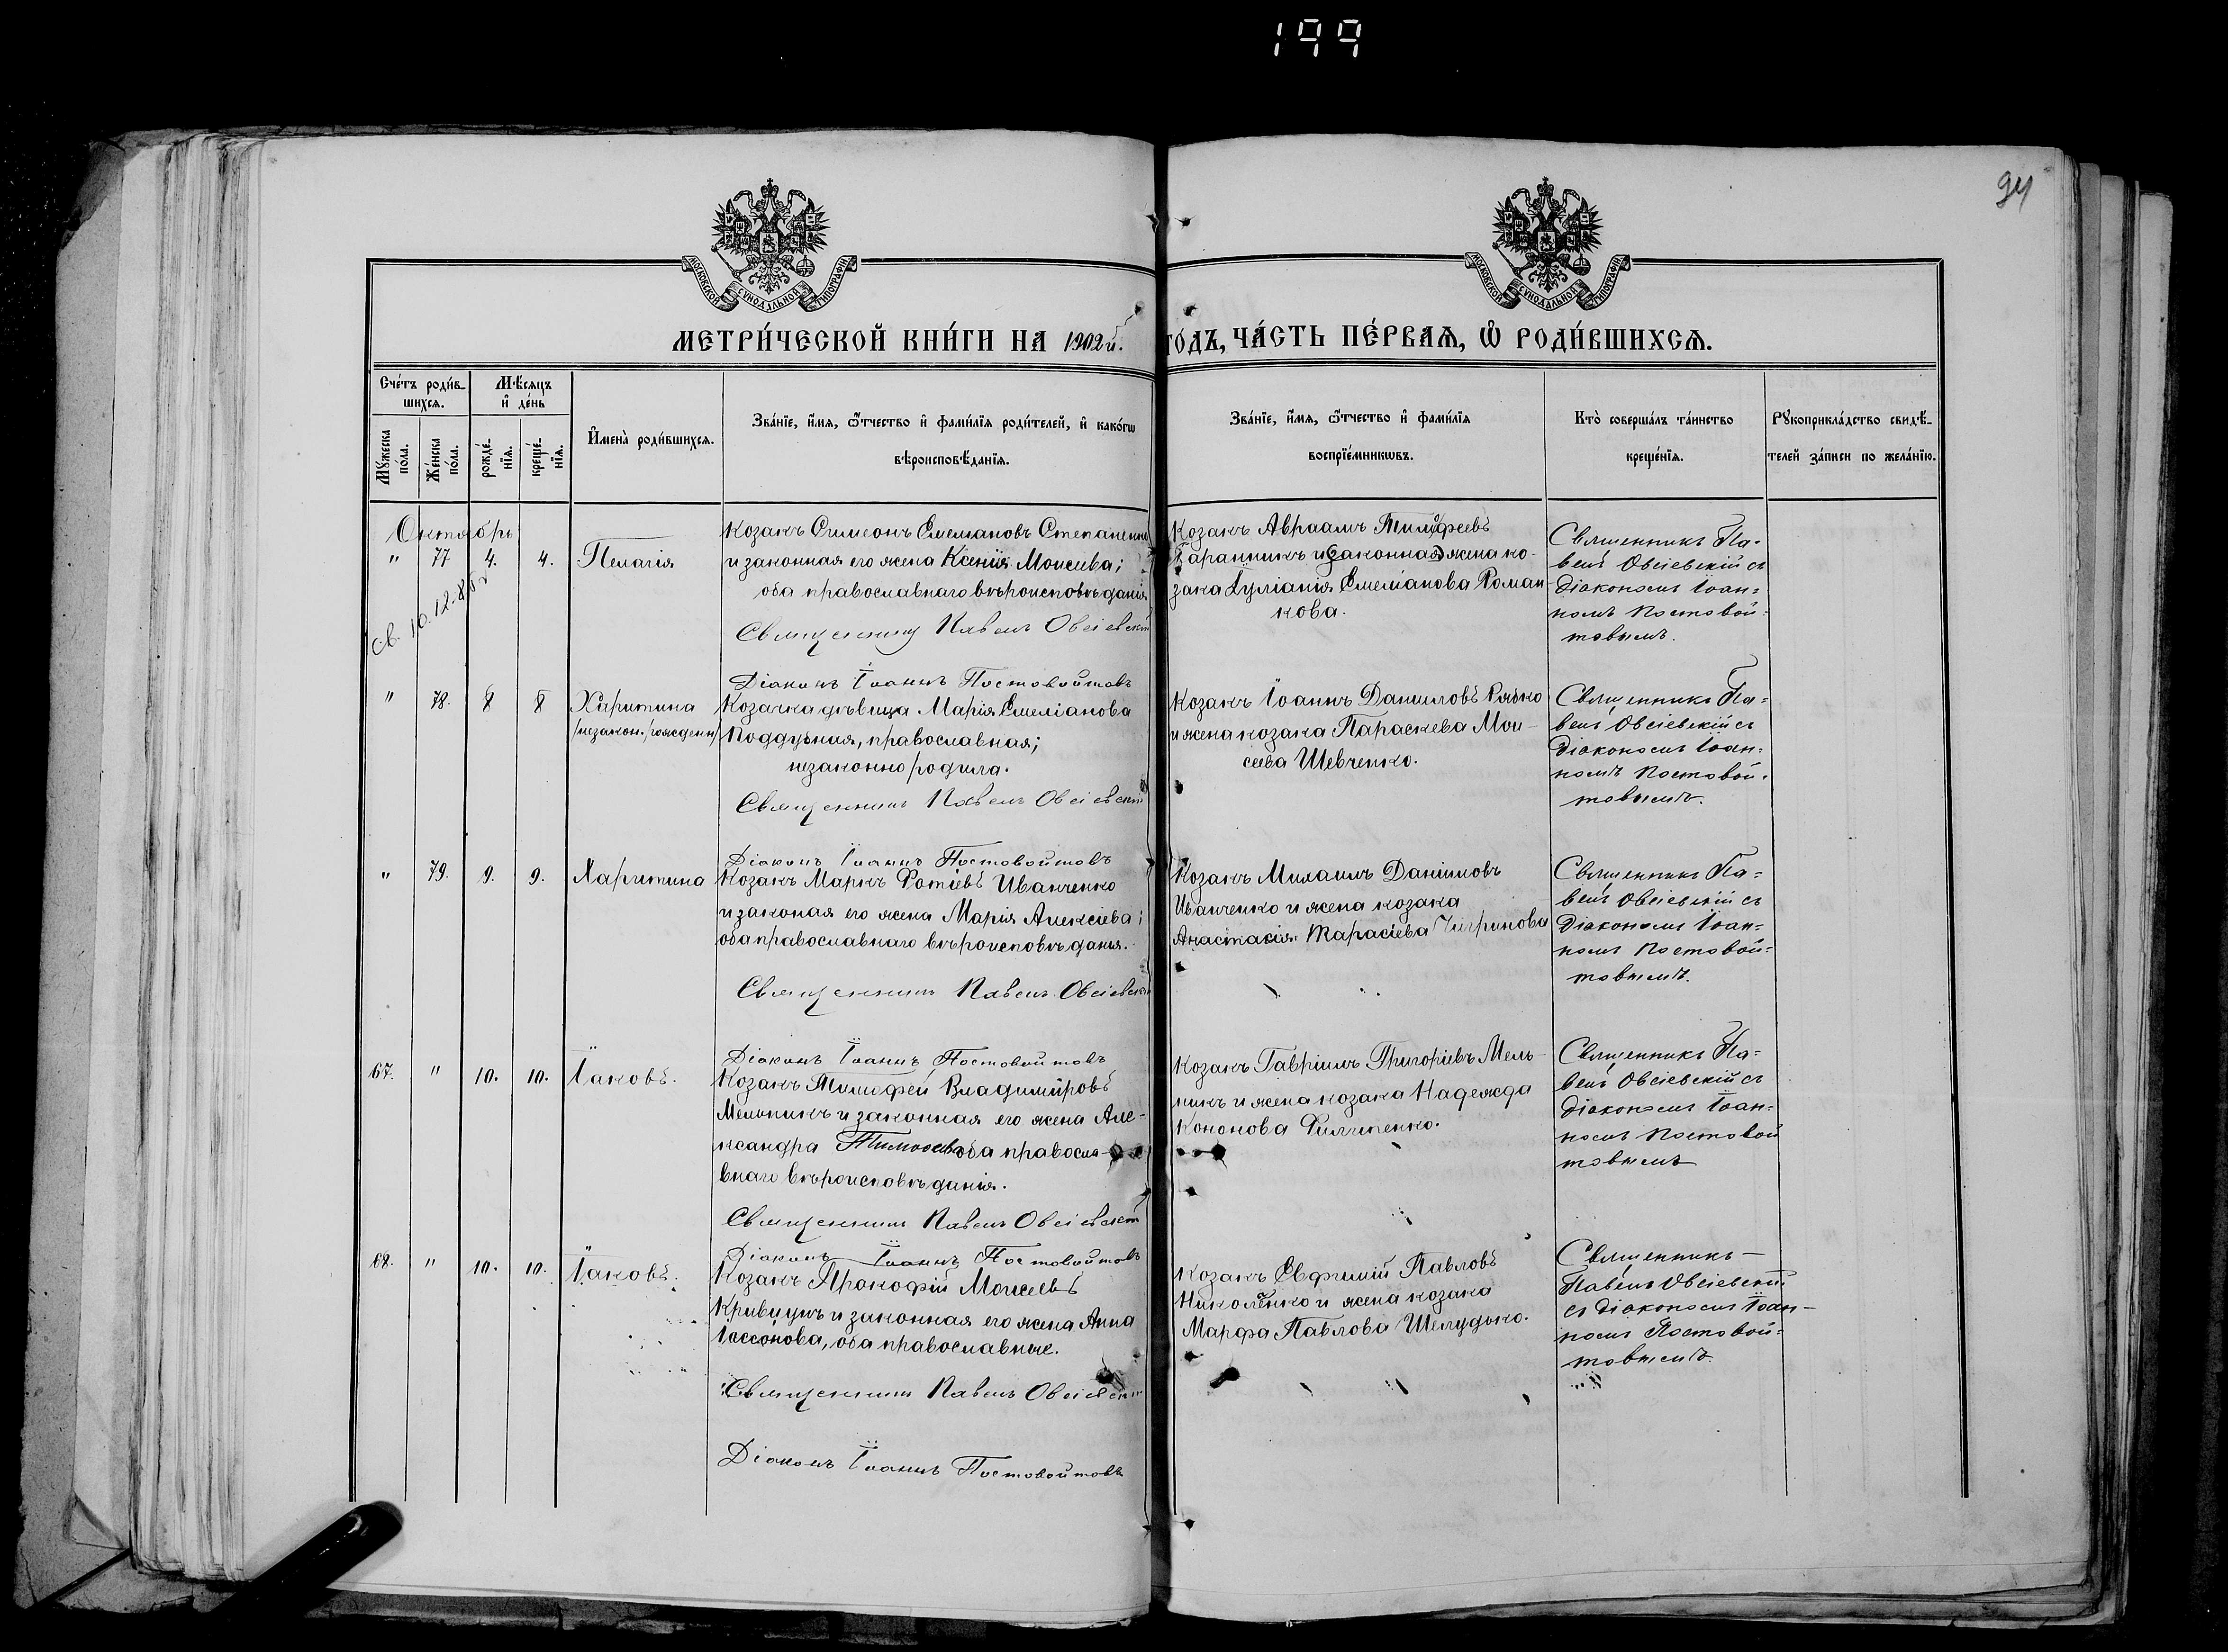 199
94
МОСКОВСКОЙ СѴНОДАЛЬНОЙ ТИПОГРАФІИ
МОСКОВСКОЙ СѴНОДАЛЬНОЙ ТИПОГРАФІИ
МЕТРИ́ЧЕСКОЙ КНИ́ГИ НА 1902й. ГОДЪ, ЧА́СТЬ ПЕ́РВАѦ, Ѽ РОДИ́ВШИХСѦ.
Сче́тъ роди́в-
шихсѧ.
Мꙋжеска по́ла.
Же́нска по́ла.
Мѣ́сѧцъ
и҆ де́нь
рожде́-
нїѧ.
креще́-
нїѧ.
И҆мена̀ роди́вшихсѧ.
Зва́нїе, и҆́мѧ, ѻ҆́тчество и҆ фами́лїѧ роди́телей, и҆ како́гѡ
вѣроисповѣ́данїѧ.
Зва́нїе, и҆́мѧ, ѻ҆́тчество и҆ фами́лїѧ
воспрїе́мникѡвъ.
Кто̀ соверша́лъ та́инство
креще́нїѧ.
Рꙋкоприкла́дство свидѣ́-
телей за́писи по жела́нїю.
Октябрь
" 77 4. 4. Пелагія
св. 10.12.
Козакъ Симеонъ Емелановъ
и законная его жена Ксенія Моисеева;
оба православнаго вѣроисповѣданія
Священникъ Павелъ Овсіевскій
Діаконъ Іоаннъ Постовойтовъ
Козакъ Авраамъ Тимофеевъ
Таранникъ и законная жена ко-
зака Іуліанія Емеліанова Роман-
кова.
Священникъ Па-
велъ Овсіевскій съ
Діакономъ Іоан-
номъ Постовой-
товымъ.
" 78. 8 8 Харитина
/незакон./рожден/
Козачка дѣвица Марія Емеліанова
Поддубная, православная;
незаконно родила.
Священникъ Павелъ Овсіевскій
Діаконъ Іоаннъ Постовойтовъ
Козакъ Іоаннъ Даниловъ Рябко
и жена козака Параскева Мои-
сеева Шевченко.
Священникъ Па-
велъ Овсіевскій съ
Діакономъ Іоан-
номъ Постовой-
товымъ.
" 79. 9. 9. Харитина
Козакъ Маркъ Фотіевъ Иванченко
и законая его жена Марія Алексіева;
оба православнаго вѣроисповѣданія.
Священникъ Павелъ Овсіевскій
Діаконъ Іоаннъ Постовойтовъ
Козакъ Михаилъ Даніиловъ
Иванченко и жена козака
Анастасія Тарасіева Чигринова
Священникъ Па-
велъ Овсіевскій съ
Діакономъ Іоан-
номъ Постовой-
товымъ.
67. " 10. 10. Іаковъ.
Козакъ Тимофей Владиміровъ
Мельникъ и законная его жена Але-
ксандра оба правосла-
внаго вѣроисповѣданія.
Священникъ Павелъ Овсіевскій
Діаконъ Іоаннъ Постовойтовъ
Козакъ Гавріилъ Григоріевъ Мель-
никъ и жена козака Надежда
Кононова Филипенко.
Священникъ Па-
велъ Овсіевскій съ
Діакономъ Іоан-
номъ Постовой
товымъ
68. " 10. 10. Іаковъ.
Козакъ Прокофій Моисеевъ
и законная его жена Анна
Іассонова, оба православные.
Священникъ Павелъ Овсіевскій
Діаконъ Іоаннъ Постовойтовъ
Козакъ Евфимій Павловъ
Николенко и жена козака
Марфа Павлова Шелудько.
Священникъ —
Павелъ Овсіевскій
съ Діакономъ Іоан-
номъ Постовой-
товымъ.